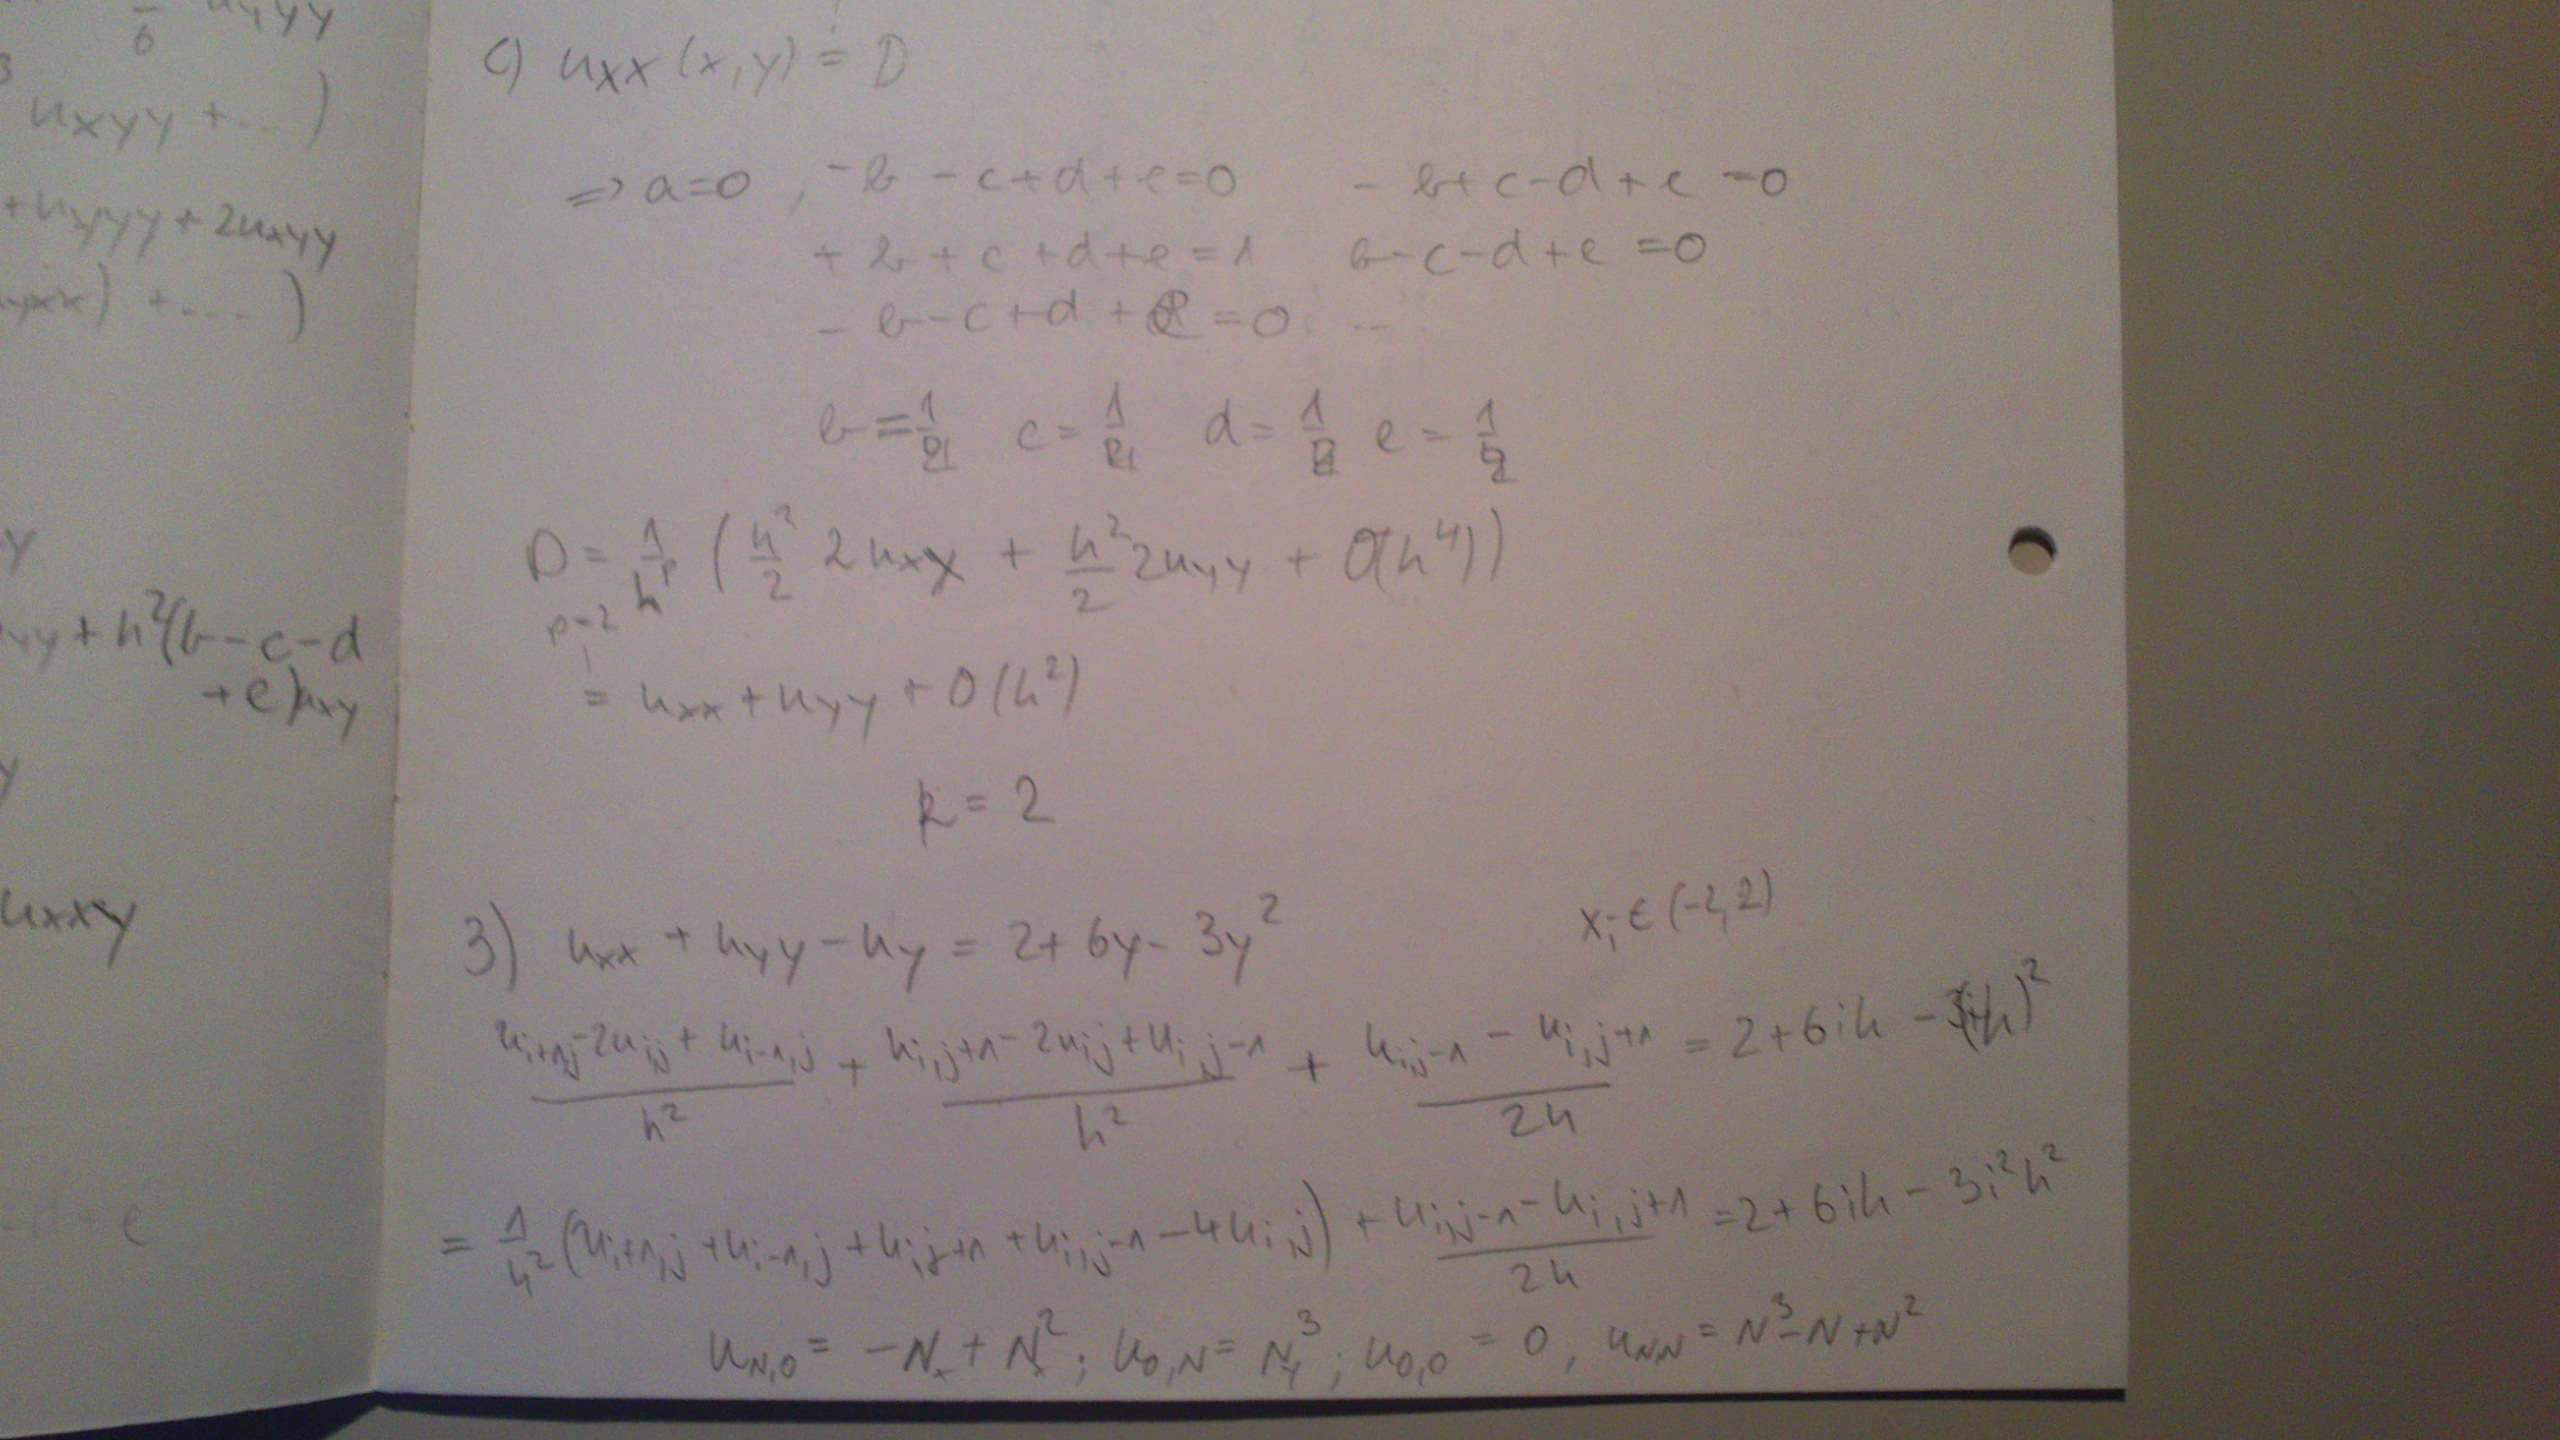 6 uyyy
3
uxyy + ... )
+ uyyy + 2uxyy
uyxx) + .... )
y
uyy + h²(b - c - d
+ e)uxy
y
uxxy
- d + e
c) uxx (x,y) = D
=> a=0 , -b - c + d + e = 0    - b + c - d + e = 0
+ b + c + d + e = 1    b - c - d + e = 0
- b - c + d + e = 0 ...
D = 1/h^p ( h²/2 2uxx + h²/2 2uyy + O(h⁴))
p=2
= uxx + uyy + O(h²)
k = 2
3) uxx + uyy - uy = 2 + 6y - 3y²    xi ∈ (-2,2)
(ui+1,j - 2ui,j + ui-1,j)/h² + (ui,j+1 - 2uij + ui,j-1)/h² + (ui,j-1 - ui,j+1)/2h = 2 + 6ih - 3(ih)²
= 1/h² (ui+1,j + ui-1,j + ui,j+1 + ui,j-1 - 4ui,j) + (ui,j-1 - ui,j+1)/2h = 2 + 6ih - 3i²h²
uN,0 = -Nx + Nx² ; u0,N = Ny³ ; u0,0 = 0, uNN = N³ - N + N²